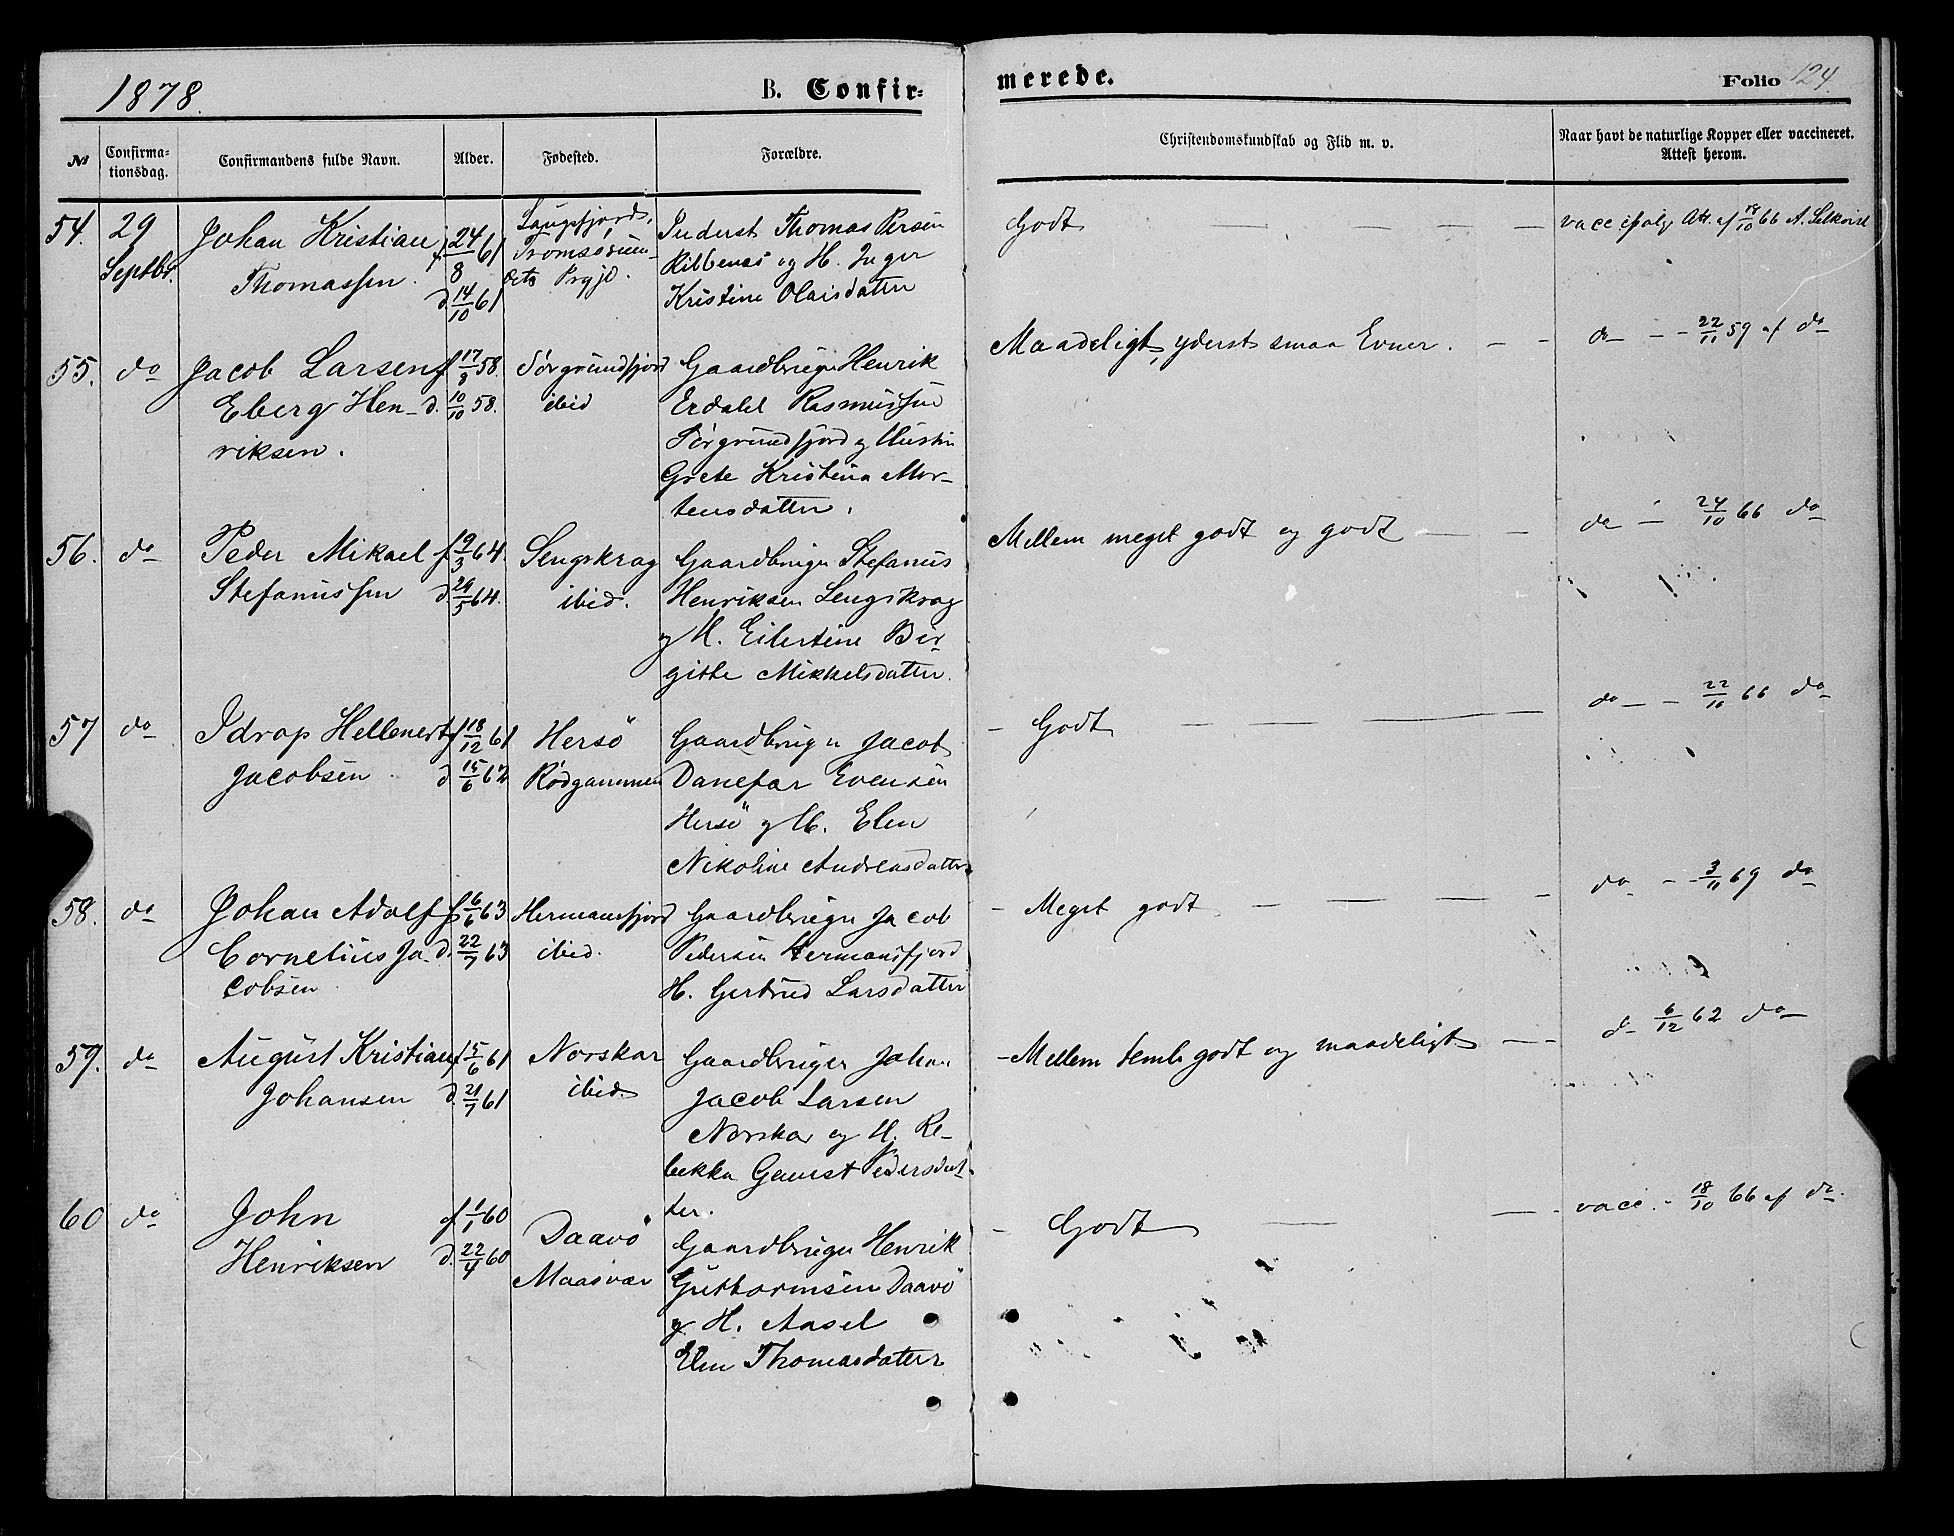 1878.
B. Confir-
merede.
Folio 124.
№
Confirma-
tionsdag.
Confirmandens fulde Navn.
Alder.
Fødested.
Forældre.
Christendomskundskab og Flid m. v.
Naar havt de naturlige Kopper eller vaccineret.
Attest herom.
54.
29
Septbr.
Johan Kristian
Thomassen.
f 24/8 61
d 14/10 61
Tromsøsun-
dets Prgjd.
Inderst Thomas Persen
og H. Inger
Kristine Olaisdatter
Godt
vacc ifølg Att. af 18/10 66 A.
55.
do
Jacob Larsen
Eberg Hen-
riksen.
f 17/8 58.
d. 10/10 58.
Sørgrundfjord
ibid
Gaardbruger Henrik
Erdahl Rasmussen
Sørgrundfjord og Hustru
Grete Kristina Mor-
tensdatter.
Maadeligt, yderst smaa Evner.
do 22/11 59 af do
56.
do
Peder Mikael
Stefanussen
f 9/3 64.
d 29/5 64.
Lengskrog
ibid.
Gaardbruger Stefanus
Henriksen Lengskrog
og H. Eilertine Bir-
gitte Mikkelsdatter.
Mellem meget godt og godt
do 24/10 66 do
57
do
Idrop Hellenert
Jacobsen
f 18/12 61
d 15/6 62
Hersö
Rødgammen
Gaardbruger Jacob
Danefar Evensen
Hersö og H. Elen
Nikoline Andreasdatter.
Godt
do 22/10 66 do
58.
do
Johan Adolf
Cornelius Ja-
cobsen
f 6/6 63
d. 22/7 63
Hermansfjord
ibid.
Gaardbruger Jacob
Pedersen Hermansfjord
H. Gertrud Larsdatter
Meget godt
do 3/11 69 do
59.
do
August Kristian
Johansen
f 15/6 61
d. 21/7 61
Norskar
ibid.
Gaardbruger Johan
Jacob Larsen
Norskar og H. Re-
bekka Gamst Pedersdat-
ter.
Mellem temlig godt og maadeligt
d 6/12 62 do
60
do
John
Henriksen
f 1/1 60
d. 22/4 60
Daavö
Maasvær
Gaardbruger Henrik
Guttormsen Daavö
og H. Aasel
Elen Thomasdatter
Godt
vacc. 18/10 66 af do.